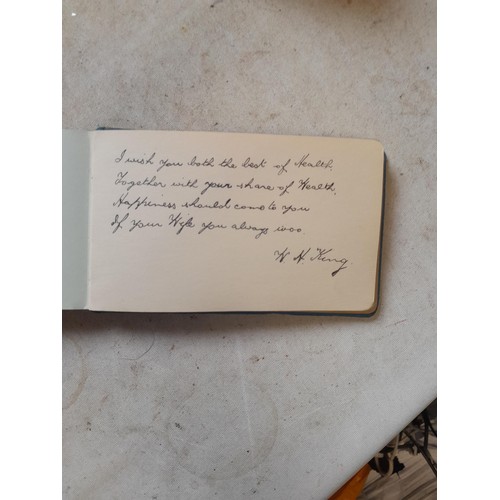 I wish you both the best of Health,
Together with your share of Wealth,
Happiness should come to you
If your Wife you always woo
W H King.